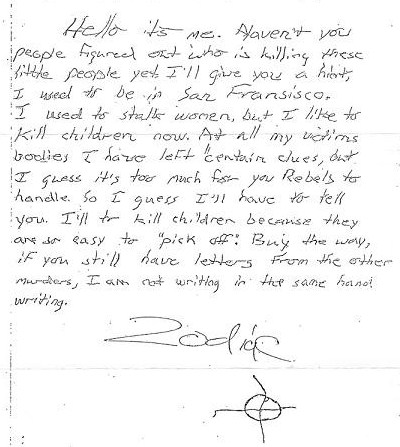 Hello it's me. Haven't you
people figured out who is killing these
little people yet? I'll give you a hint,
I used to be in San Fransisco.
I used to stalk women, but I like to
kill children now. At all my victims
bodies I have left "certain clues, but
I guess it's too much for you Rebels to
handle. So I guess I'll have to tell
you. I'll kill children because they
are so easy to "pick off". Buy the way,
if you still have letters from the other
murders, I am not writing in the same hand
writing.
Zodiac